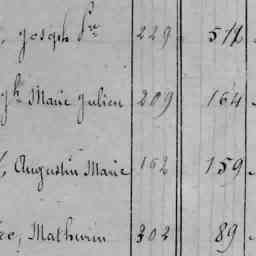 , Joseph Pre 229 512
gh Marie Julien 209 164
, Augustin Marie 162 159
ec, Mathurin 302 89